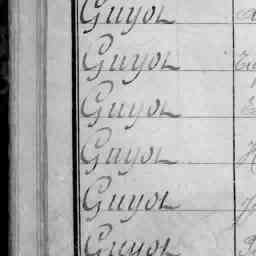 Guyot
Guyot
Guyot
Guyot
Guyot
Guyot